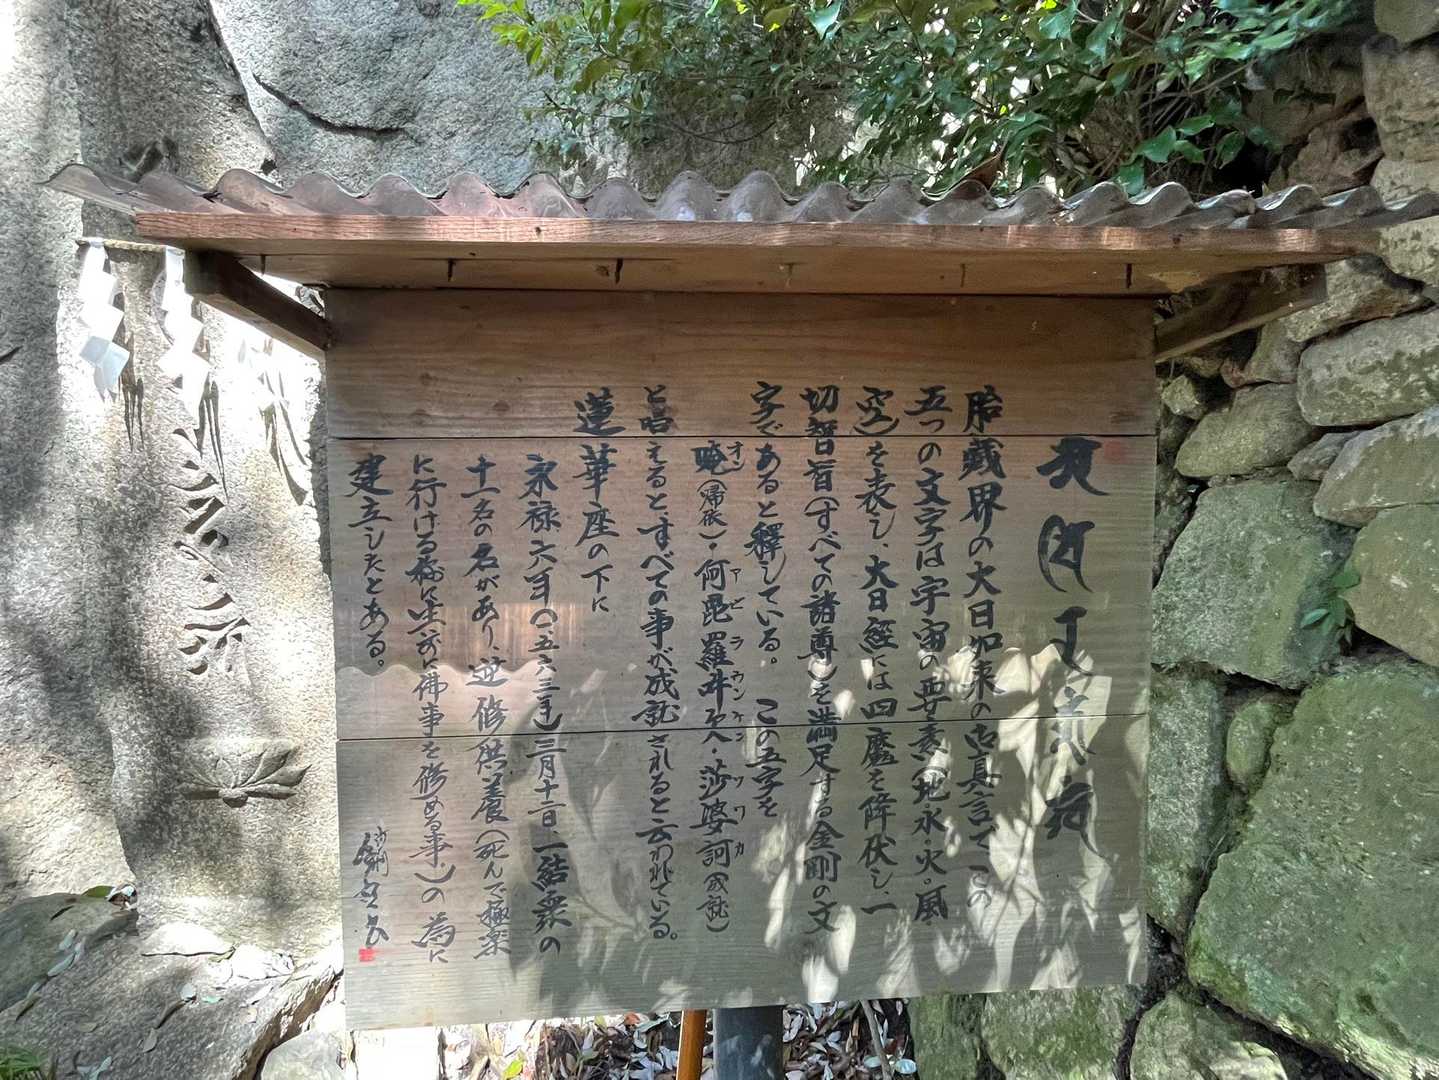 胎蔵界の大日如来の御真言で この
五つの文字は宇宙の要素(地・水・火・風・
空)を表し、大日経には四魔を降伏し、一
切智智(すべての諸尊)を満足する金剛の文
字であると釋している。 この五字を
唵(帰依)・阿毘羅吽欠・莎婆訶(成就)
オン アビラウンケン ソワカ
と唱えるとすべての事が成就されると云われている。
蓮華座の下に
永禄六年(一五六三年)三月十二日、一結衆の
十一名の名があり、逆修供養(死んで極楽
に行ける様に生前に佛事を修める事)の為に
建立したとある。